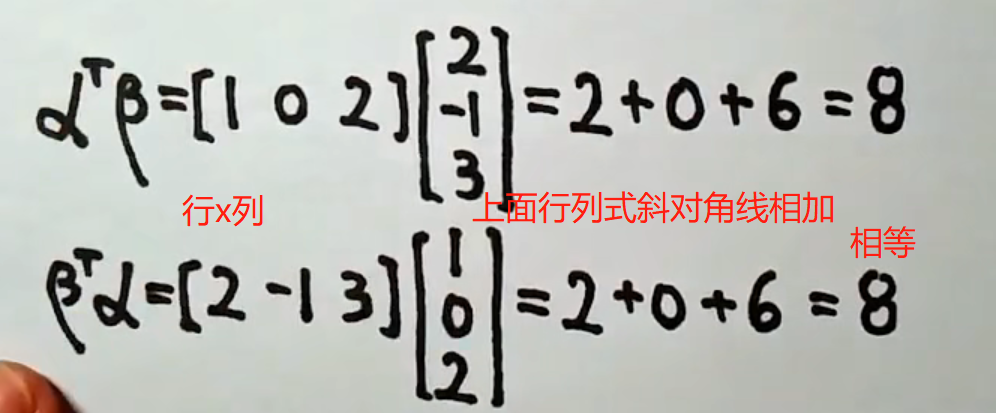 αᵀβ=[1 0 2][2 -1 3]=2+0+6=8
行x列
上面行列式斜对角线相加
相等
βᵀα=[2 -1 3][1 0 2]=2+0+6=8